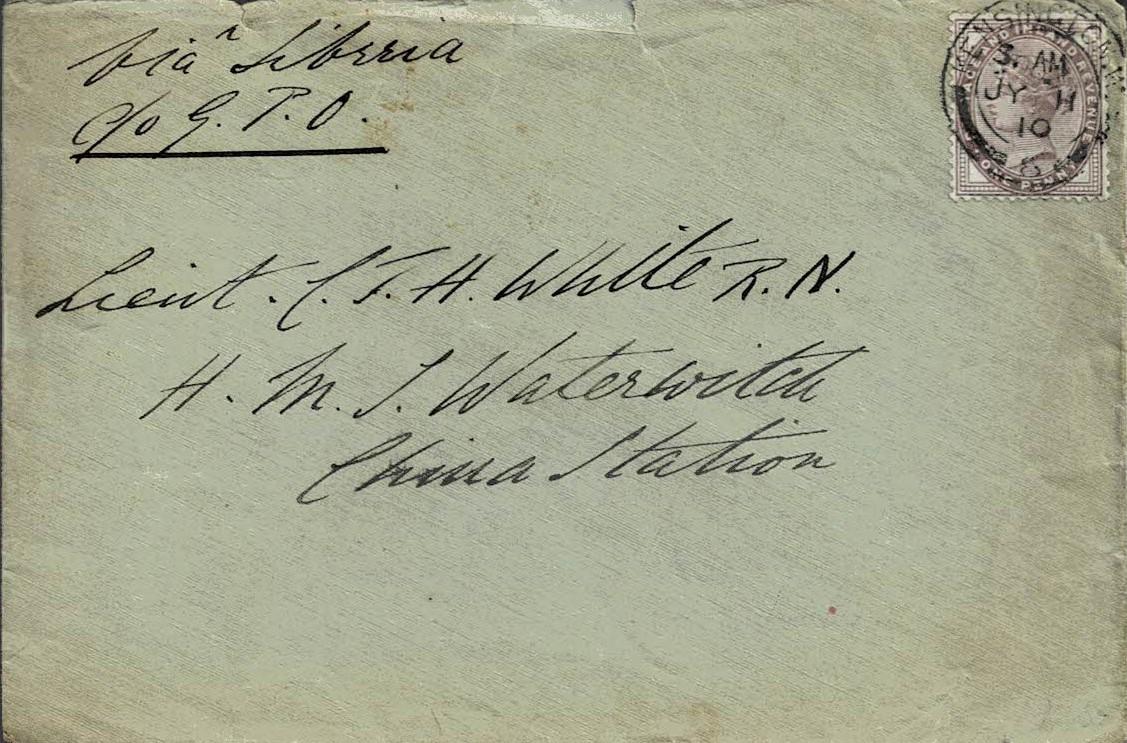 via Siberia
c/o G.P.O.
KENSINGTON.W.
3. AM
JY 11
10
POSTAGE AND INLAND REVENUE
ONE PENNY
Lieut. C. T. H. White R.N.
H.M.S. Waterwitch
China Station